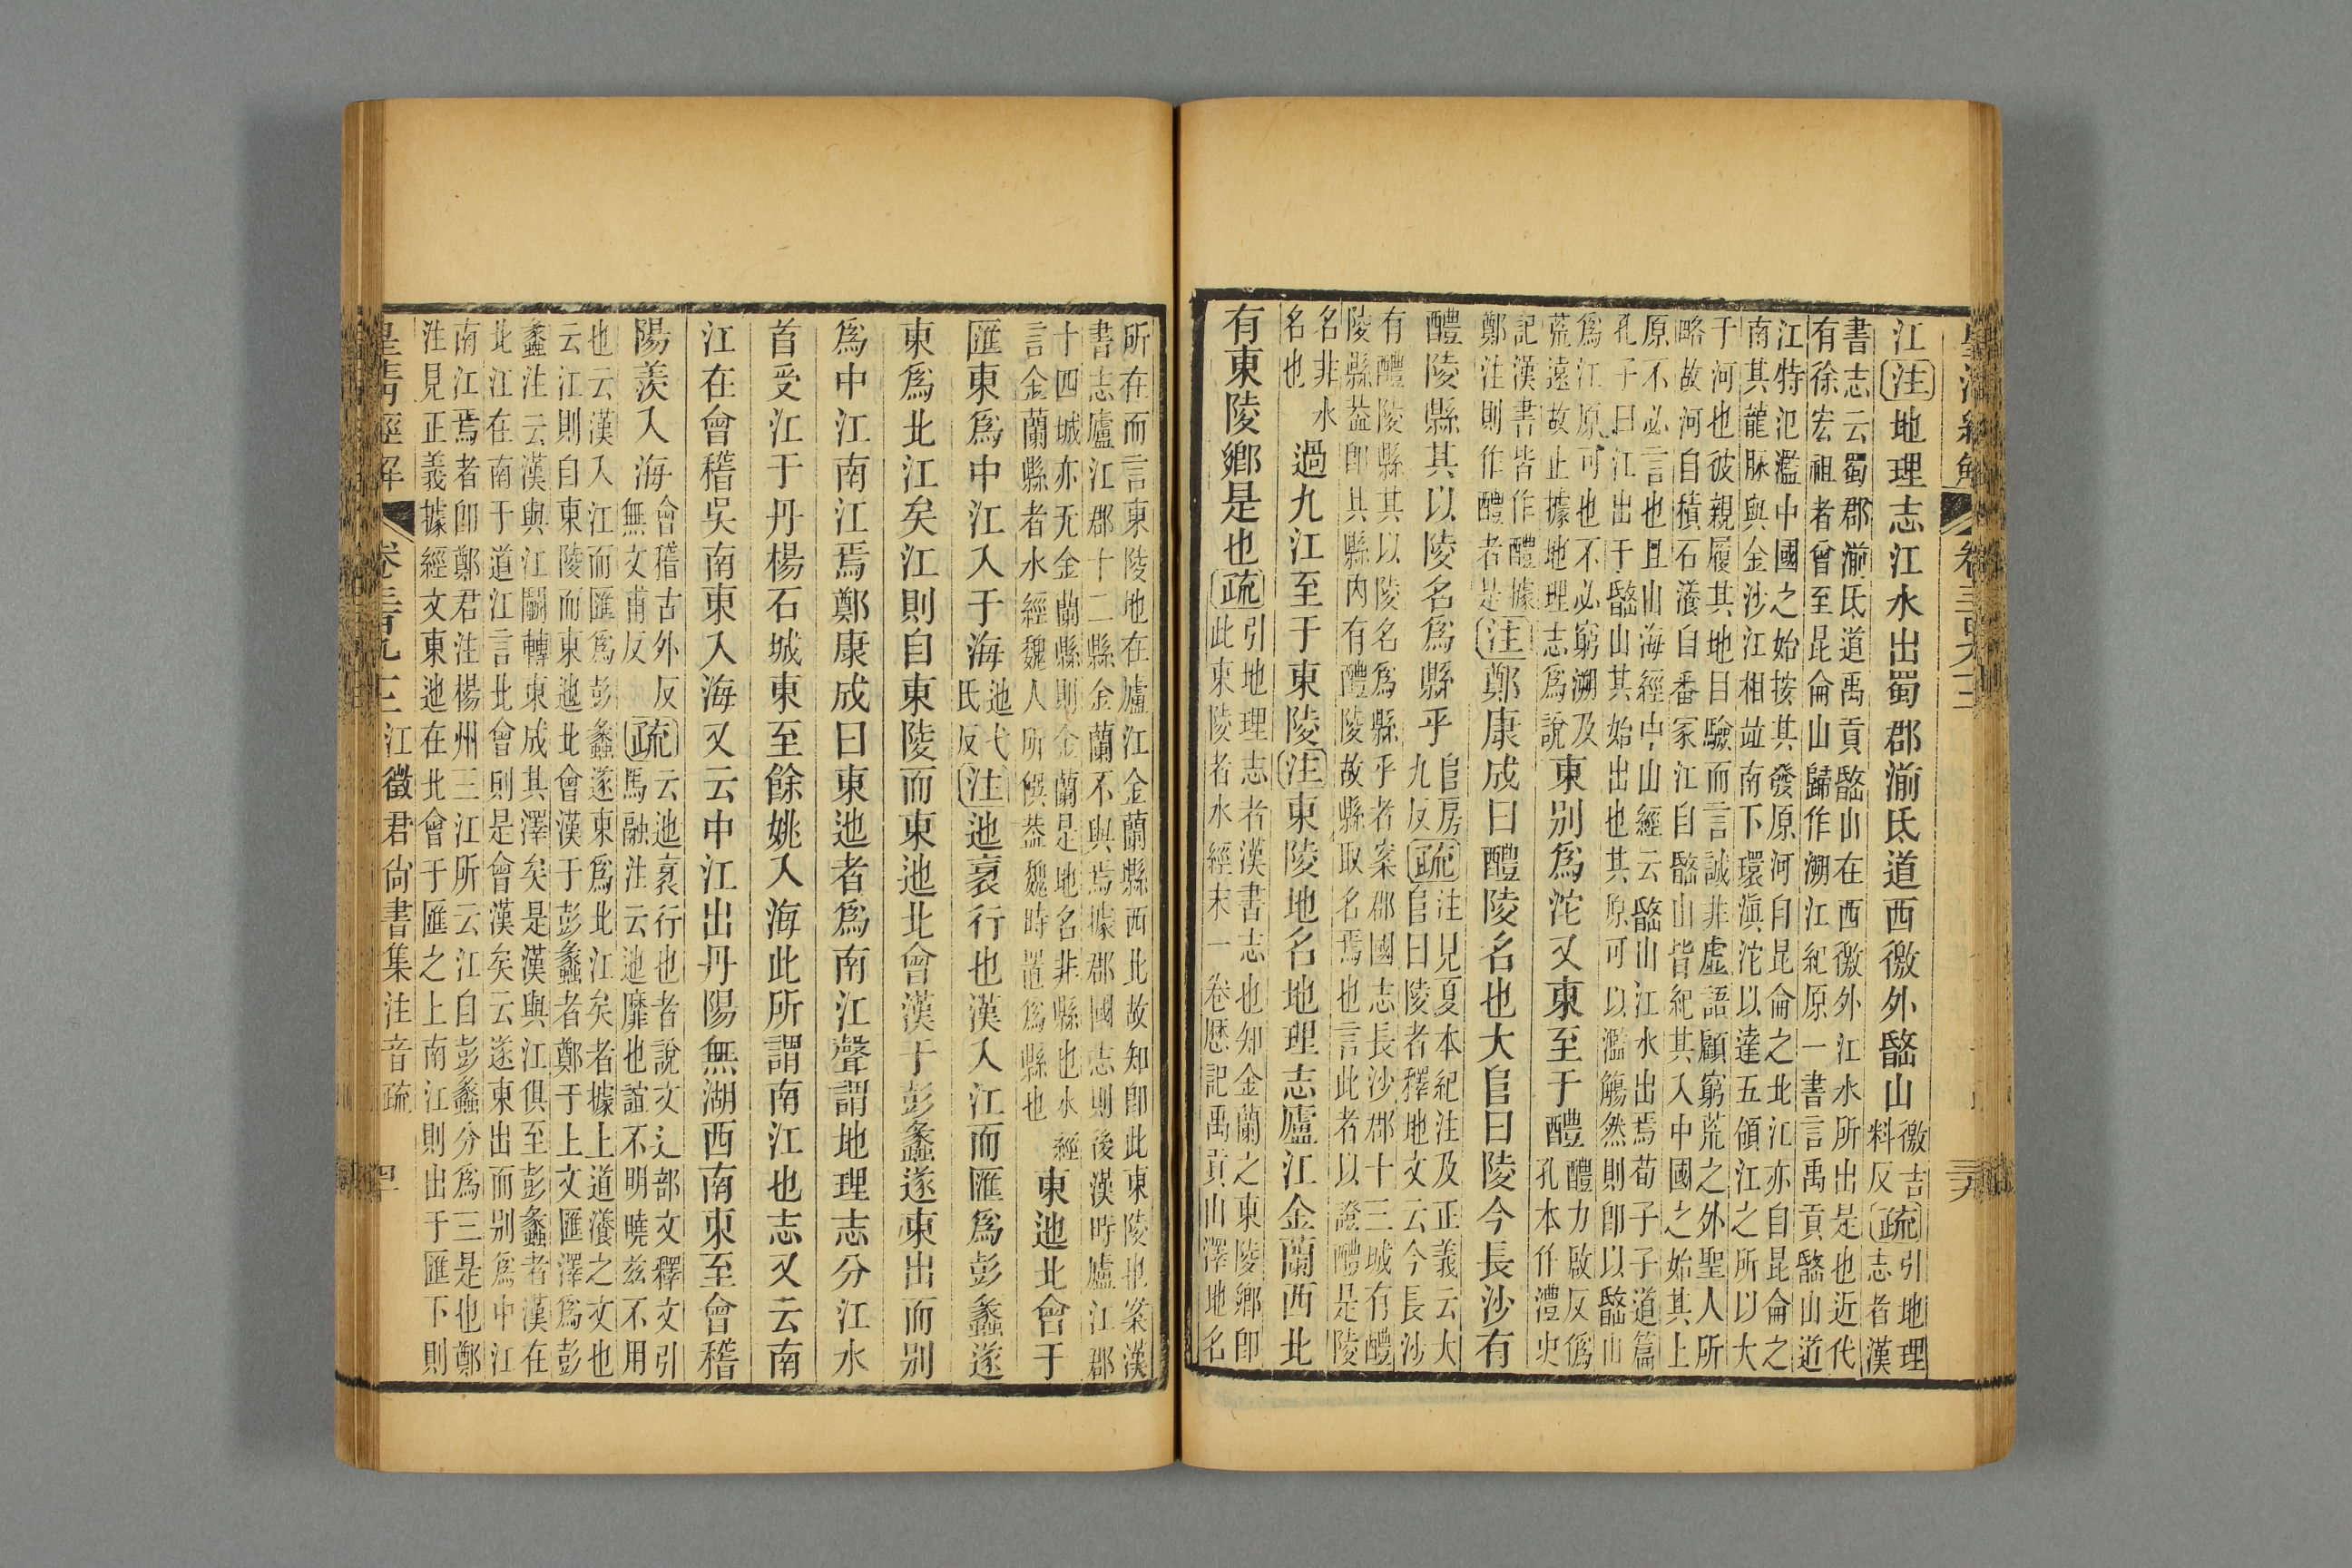 皇清經解 卷三百九十三
江注地理志江水出蜀郡湔氐道西徼外㟭山
徼吉
料反
疏
引地理
志者漢
書志云蜀郡湔氐道禹貢㟭山在西徼外江水所出是也近代
有徐宏祖者曾至昆侖山歸作溯江紀原一書言禹貢㟭山道
江特氾濫中國之始按其發原河自昆侖之北江亦自昆侖之
南其龍脉與金沙江相竝南下環滇沱以達五領江之所以大
于河也彼親履其地目驗而言誠非虛語顧窮荒之外聖人所
略故河自積石瀁自番冢江自㟭山皆紀其入中國之始其上
原不必言也且山海經中山經云㟭山江水出焉荀子子道篇
孔子曰江出于㟭山其始出也其原可以濫觴然則卽以㟭山
爲江原可也不必窮溯及
荒遠故止據地理志爲說
東別爲沱又東至于醴
醴力啟反僞
孔本作澧史
記漢書皆作醴據
鄭注則作醴者是
注鄭康成曰醴陵名也大𠂤曰陵今長沙有
醴陵縣其以陵名爲縣乎
𠂤房
九反
疏
注見夏本紀注及正義云大
𠂤曰陵者釋地文云今長沙
有醴陵縣其以陵名爲縣乎者案郡國志長沙郡十三城有醴
陵縣葢卽其縣内有醴陵故縣取名焉也言此者以證醴是陵
名非水
名也
過九江至于東陵注東陵地名地理志廬江金蘭西北
有東陵鄉是也疏
引地理志者漢書志也知金蘭之東陵鄉卽
此東陵者水經末一卷歷記禹貢山澤地名
所在而言東陵地在廬江金蘭縣西北故知卽此東陵也案漢
書志廬江郡十二縣金蘭不與焉據郡國志則後漢時廬江郡
十四城亦无金蘭縣則金蘭是地名非縣也水經
言金蘭縣者水經魏人所僎葢魏時置爲縣也
東迆北會于
匯東爲中江入于海
迆弋
氏反
注迆衺行也漢入江而匯爲彭蠡遂
東爲北江矣江則自東陵而東迆北會漢于彭蠡遂東出而別
爲中江南江焉鄭康成曰東迆者爲南江聲謂地理志分江水
首受江于丹楊石城東至餘姚入海此所謂南江也志又云南
江在會稽吳南東入海又云中江出丹陽無湖西南東至會稽
陽羨入海
會稽古外反
無文甫反
疏
云迆衺行也者說文辵部文釋文引
馬融注云迆靡也誼不明曉兹不用
也云漢入江而匯爲彭蠡遂東爲北江矣者據上道瀁之文也
云江則自東陵而東迆北會漢于彭蠡者鄭于上文匯澤爲彭
蠡注云漢與江鬭轉東成其澤矣是漢與江俱至彭蠡者漢在
北江在南于道江言北會則是會漢矣云遂東出而別爲中江
南江焉者卽鄭君注楊州三江所云江自彭蠡分爲三是也鄭
注見正義據經文東迆在北會于匯之上南江則出于匯下則
皇清經解 卷三百九十三 江徵君尙書集注音疏